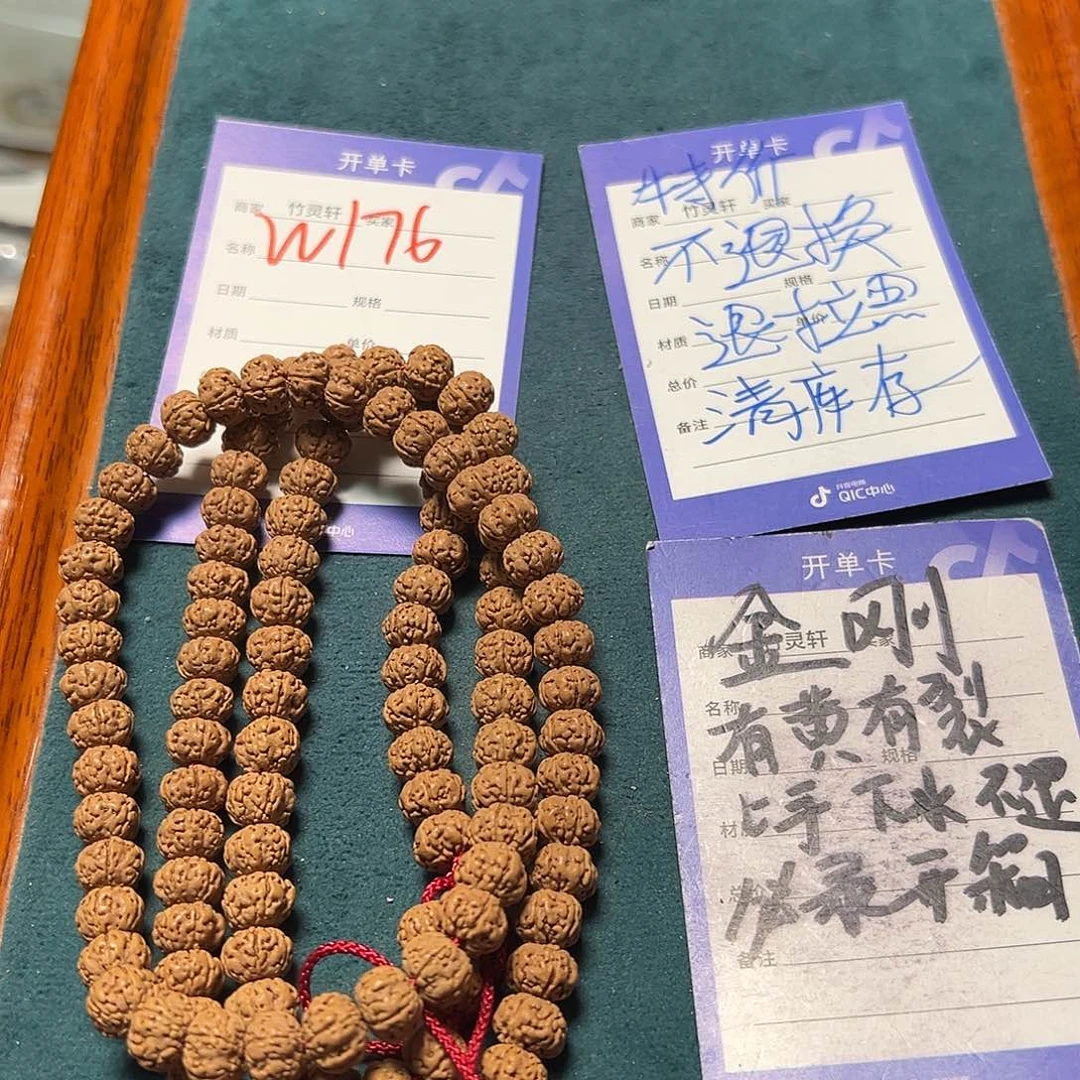 开单卡
商家 竹灵轩 买家
W176
名称
日期 规格
材质 单价
中心
开单卡
特价
商家 竹灵轩 买家
不退换
名称
日期 规格
退拉黑
材质 单价
总价
清库存
备注
抖音电商
QIC中心
开单卡
金刚
商家 竹灵轩 买家
名称
有黄有裂
日期 规格
上手下水不退
材
必录开箱
总价
备注